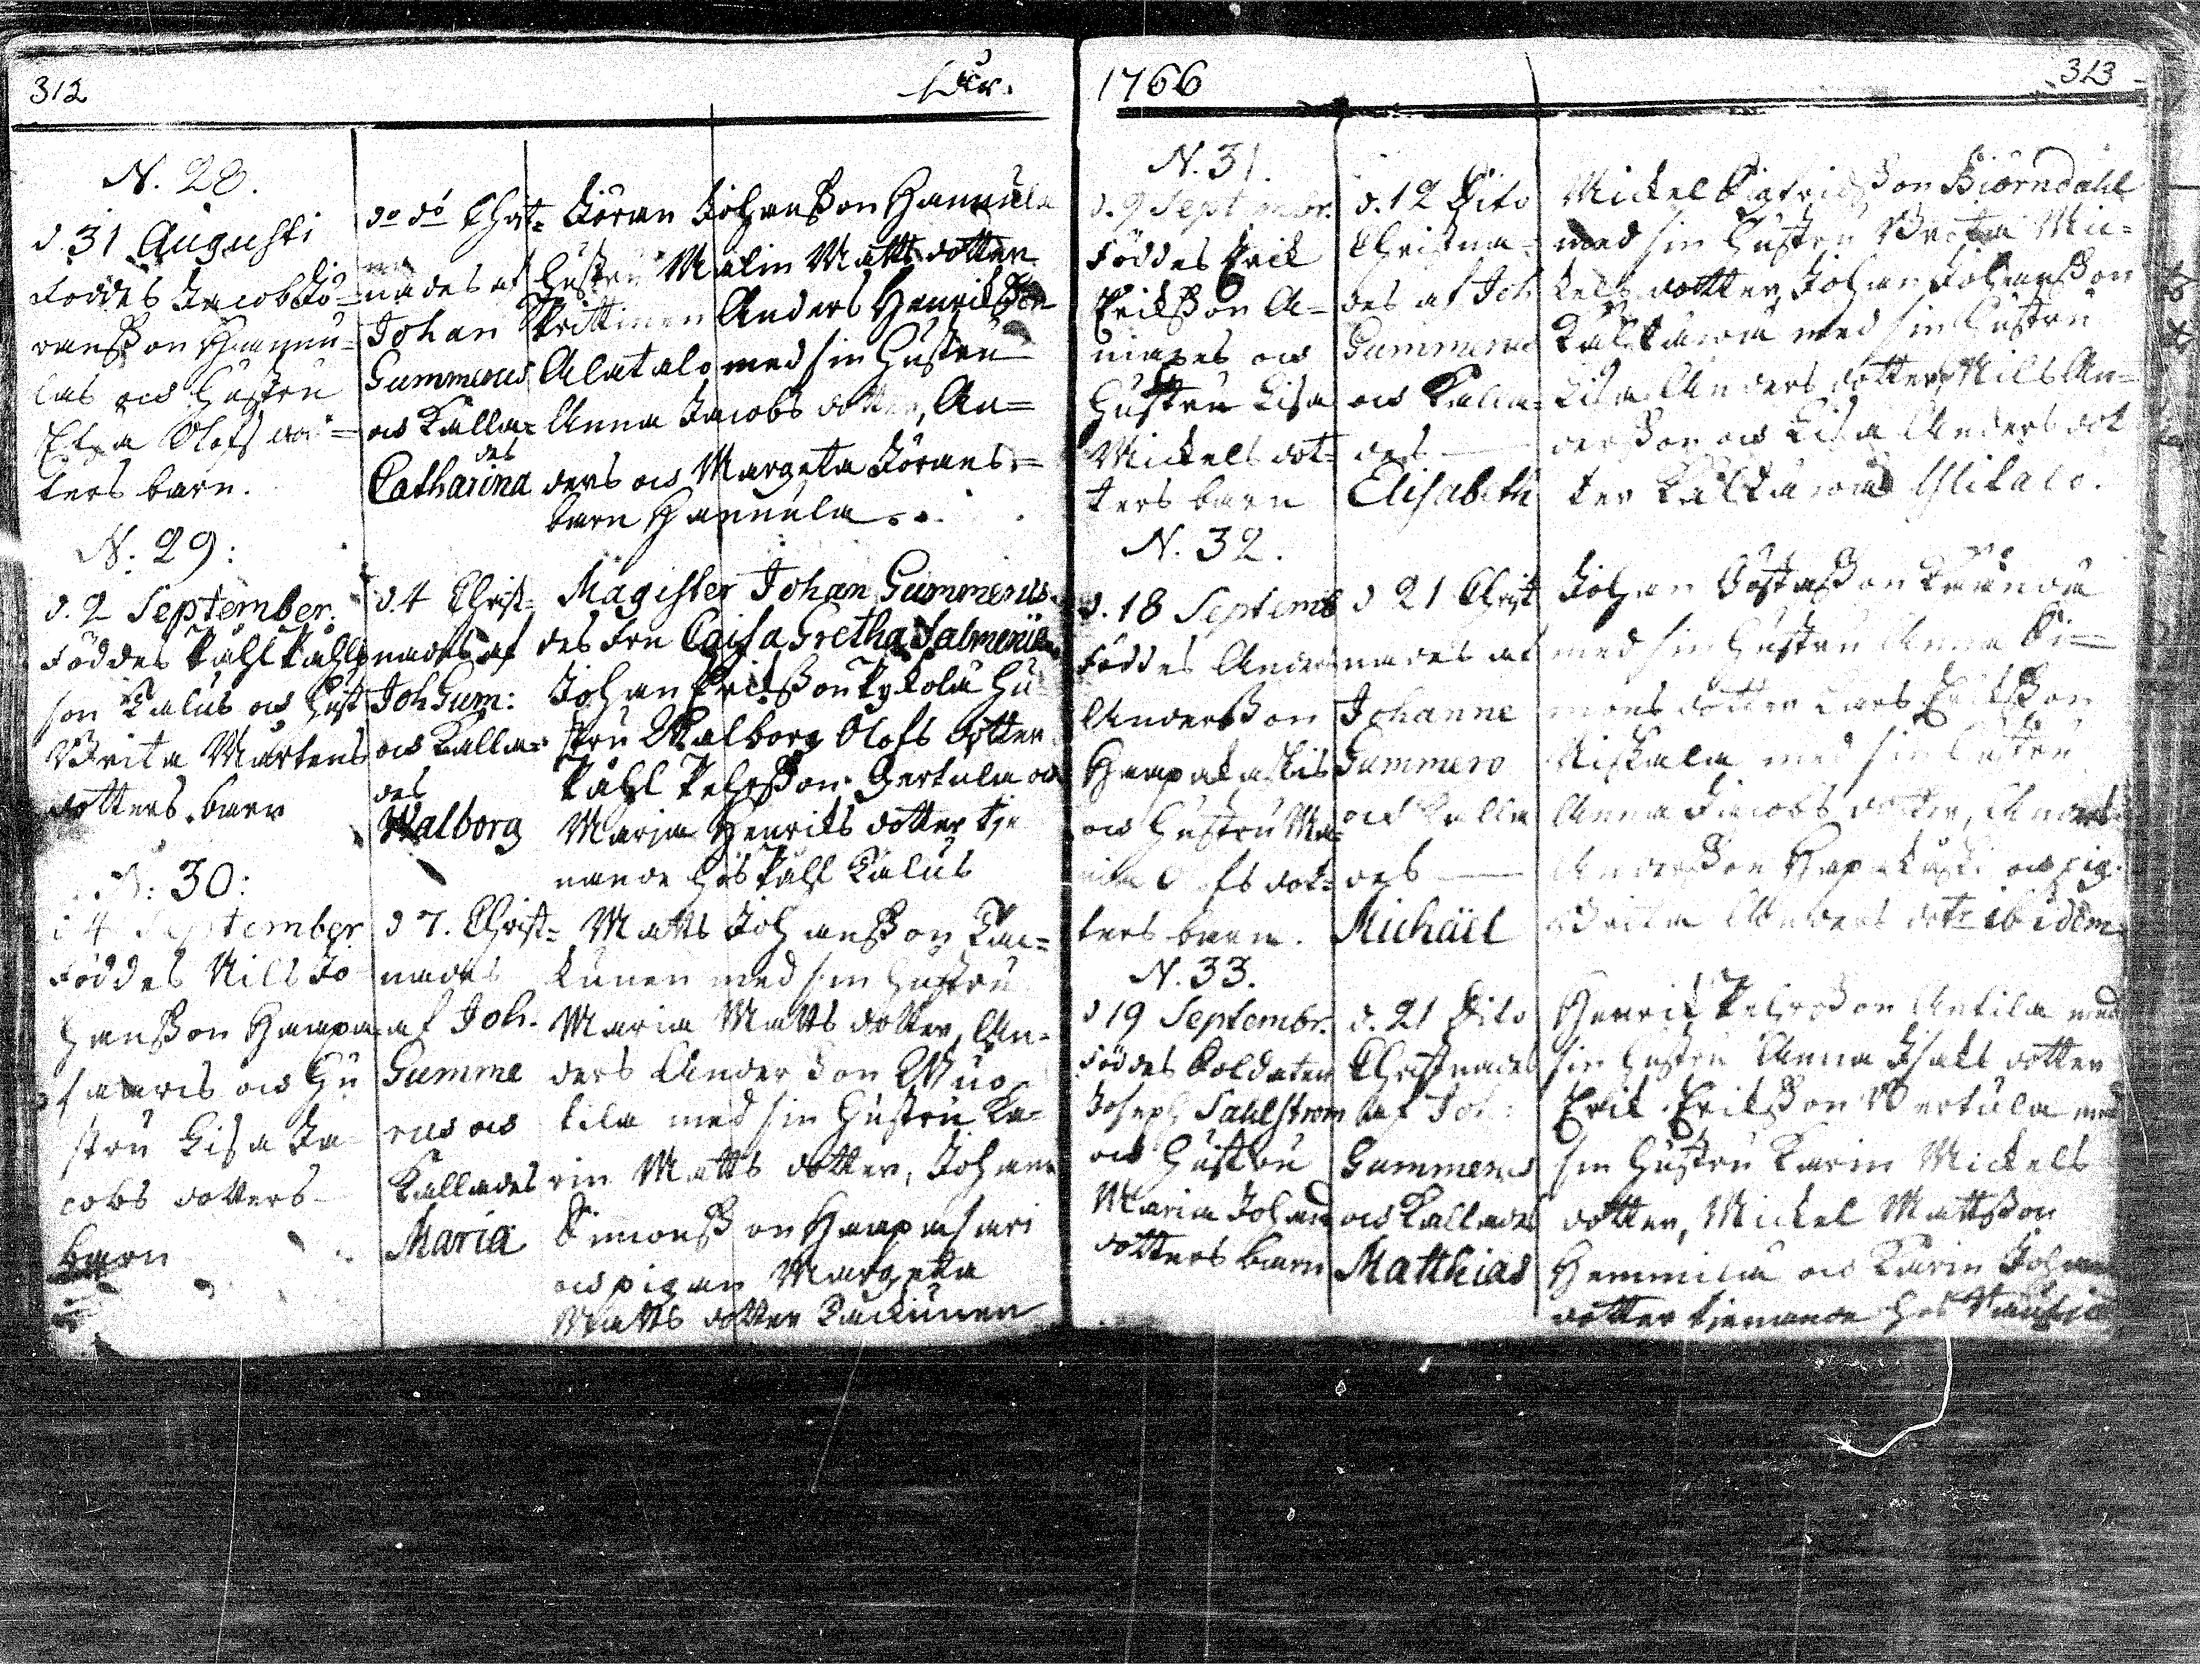 312
N. 28.
d. 31 Augusti
Foddes Jacob Jö=
ransson Hannu=
las och Hustru
Elsa Olofs dot=
ters barn.
do do Christ=
nades af
Johan
Gummerus
och Kalla=
des
Catharina
Jöran Johansson Hannula
Hustru Malin Matts dotter
Anders Henriksson
Alatalo med sin Hustru
Anna Jacobs dotter, An=
ders och Margeta Jörans=
barn Hannula.
N. 29:
d. 2 September.
Föddes Påhl Påhls
son Kalus och Hust
Brita Mårtens
dotters barn
d. 4 Christ=
nades af
Joh Gum:
och Kalla=
des
Walborg
Magister Johan Gummerus
des Fru Caisa Gretha Salmenius
Johan Eriksson Pykola Hu
stru Walborg Olofs dotter
Påhl Pehrsson Gertula och
Maria Henriks dotter tje
nande hos Påhl Kalus
N. 30:
d 4 September
Föddes Nils Jo
hansson Haapa
saaris och Hu
stru Lisa Ja
cobs dotters
barn
d 7. Christ=
nades
af Joh.
Gumme
rus och
Kallades
Maria
Matts Johansson Kac=
kunen med sin Hustru
Maria Matts dotter, An=
ders Andersson Wuo
tila med sin Hustru Ka=
rin Matts dotter, Johan
Simonsson Haapasari
och pigan Margeta
Matts dotter Kackunen
1766
313
N. 31.
d. 9 Septembr.
Föddes Erik
Eriksson A=
och
Hustru Lisa
Mickels dot=
ters barn
d. 12 Dito
Christna=
des af Joh
Gummerus
och Kalla=
des
Elisabeth
Mickel Sigfridsson Biörndahl
med sin Hustru Brita Mic=
kels dotter, Johan Johansson
med sin Hustru
Lisa Anders dotter, Nils An=
dersson och Lisa Anders dot
ter Ylitalo.
N. 32.
d. 18 Septemb
Föddes Anders
Andersson
Haapakoskis
och Hustru Ma=
Olofs dot=
ters barn.
d 21 Christ
nades af
Johanne
Gummero
och Kalla
des
Michäel
Johan Göstasson
med sin Hustru Anna Si=
mons dotter Lars Eriksson
Niskala med sin Hustru
Anna Jacobs dotter, Anders
Andersson Hapakoski och pig.
Brita Anders dotr ibidem.
N. 33.
d 19 Septembr.
Föddes Soldaten
Joseph Sahlström
och Hustru
Maria Johans
dotters barn
d. 21 Dito
Christnades
af Joh:
Gummerus
och Kallades
Matthias
Henrik Pehrsson Antila med
sin Hustru Anna Isaks dotter
Erik Eriksson Wertula med
sin Hustru Karin Mickels
dotter, Mickel Mattsson
Hemmila och Karin Johans
dotter tjenande hos